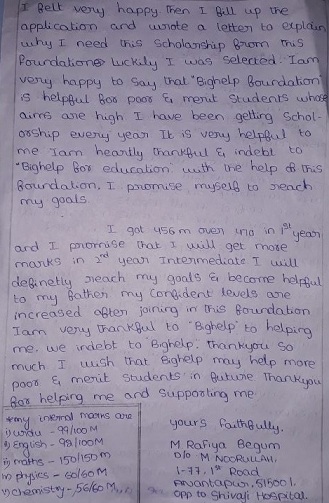 I Felt very happy then I fill up the
application and wrote a letter to explain
why I need this Scholarship from this
Foundation luckily I was selected. I am
very happy to say that "Bighelp Foundation
is helpful for poor & merit students whose
aims are high I have been getting Schol-
orship every year It is very helpful to
me I am heartly thankful & indebt to
"Bighelp for education" with the help of this
Foundation. I promise myself to reach
my goals.
I got 456 m over 470 in 1st year
and I promise that I will get more
marks in 2nd year Intermediate I will
definetly reach my goals & become helpful
to my father. my Confident levels are
increased after joining in this Foundation
I am very thankful to "Bghelp" to helping
me. we indebt to Bighelp. Thankyou so
much I wish that Bighelp may help more
poor & merit students in future Thankyou
for helping me and Supporting me
*my internal marks are
i) urdu - 99/100 M
ii) English - 98/100 M
iii) maths - 150/150 m
iv) physics - 60/60 M
v) chemistry - 56/60 M
yours faithfully,
M Rafiya Begum
D/o M NOORULLAH,
1-77, 1st Road
Anantapur, 515001,
opp to Shivaji Hospital.